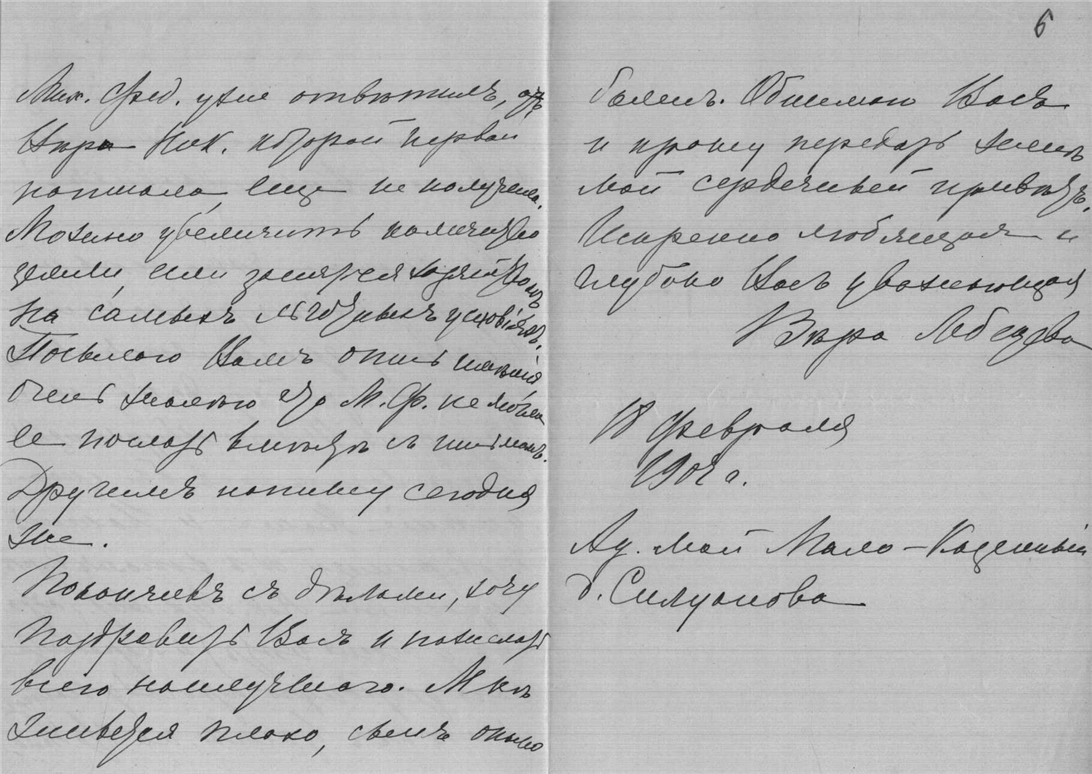 6
Мих. Фед. уже ответилъ, отъ
Ник. которой первой
написала, еще не получила.
Можно увеличить количество
земли, если займется хозяйствомъ
на самыхъ льготныхъ условіяхъ.
Посылаю Вамъ опись имѣнія,
очень жалею что М. Ф. не могла
ее послать вместѣ съ письмомъ.
Другимъ напишу сегодня
же.
Покончивъ съ дѣлами, хочу
поздравить Васъ и пожелать
всего наилучшаго. Мнѣ
живется плохо, сынъ опасно
боленъ. Обнимаю Васъ
и прошу передать женѣ
мой сердечный привѣтъ.
Искренно любящая и
глубоко Васъ уважающая
Вѣра
18 февраля
190 г.
Ад. мой Мало-Казенный
д. Силуанова